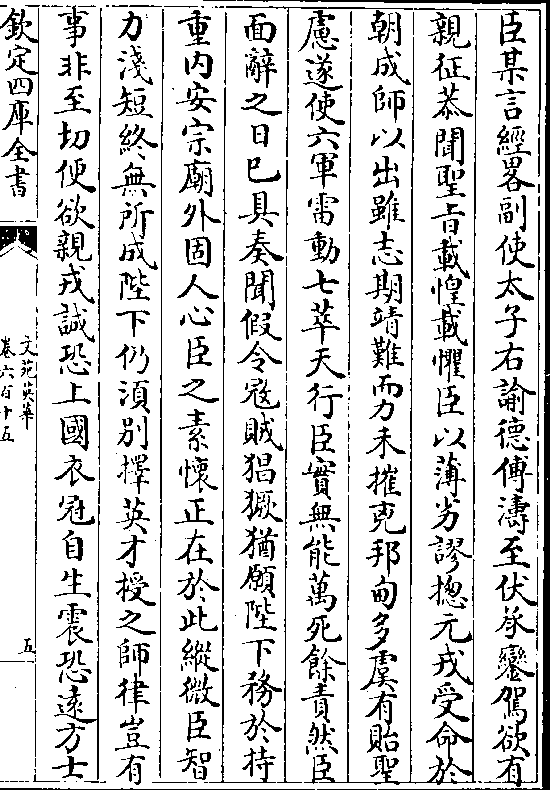 臣某言經畧副使太子右諭德傅濤至伏承鑾駕欲有
親征恭聞聖旨載惶載懼臣以薄劣謬揔元戎受命於
朝成師以出雖志期靖難而力未摧克邦甸多虞有貽聖
慮遂使六軍雷動七萃天行臣實無能萬死餘責然臣
面辭之日已具奏聞假令寇賊猖獗猶願陛下務於持
重内安宗廟外固人心臣之素懷正在於此縱微臣智
力淺短終無所成陛下仍湏别擇英才授之師律豈有
事非至切便欲親戎誠恐上國衣冠自生震恐遠方士
欽定四庫全書
文苑英華
卷六百十五
五